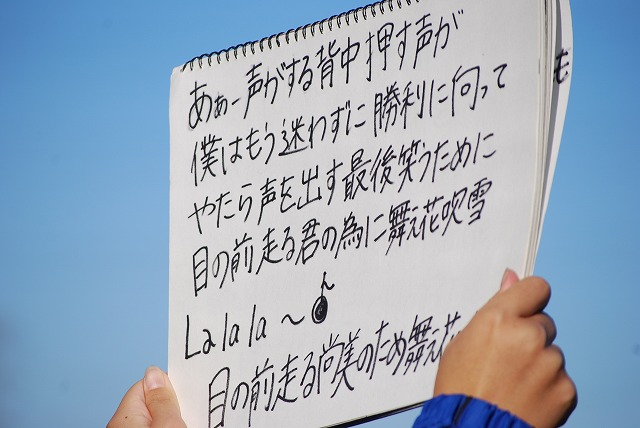 あぁー声がする背中押す声が
僕はもう迷わずに勝利に向って
やたら声を出す最後笑うために
目の前走る君の為に舞え花吹雪
Lalala～♪
目の前走る尚美のため舞え花
も